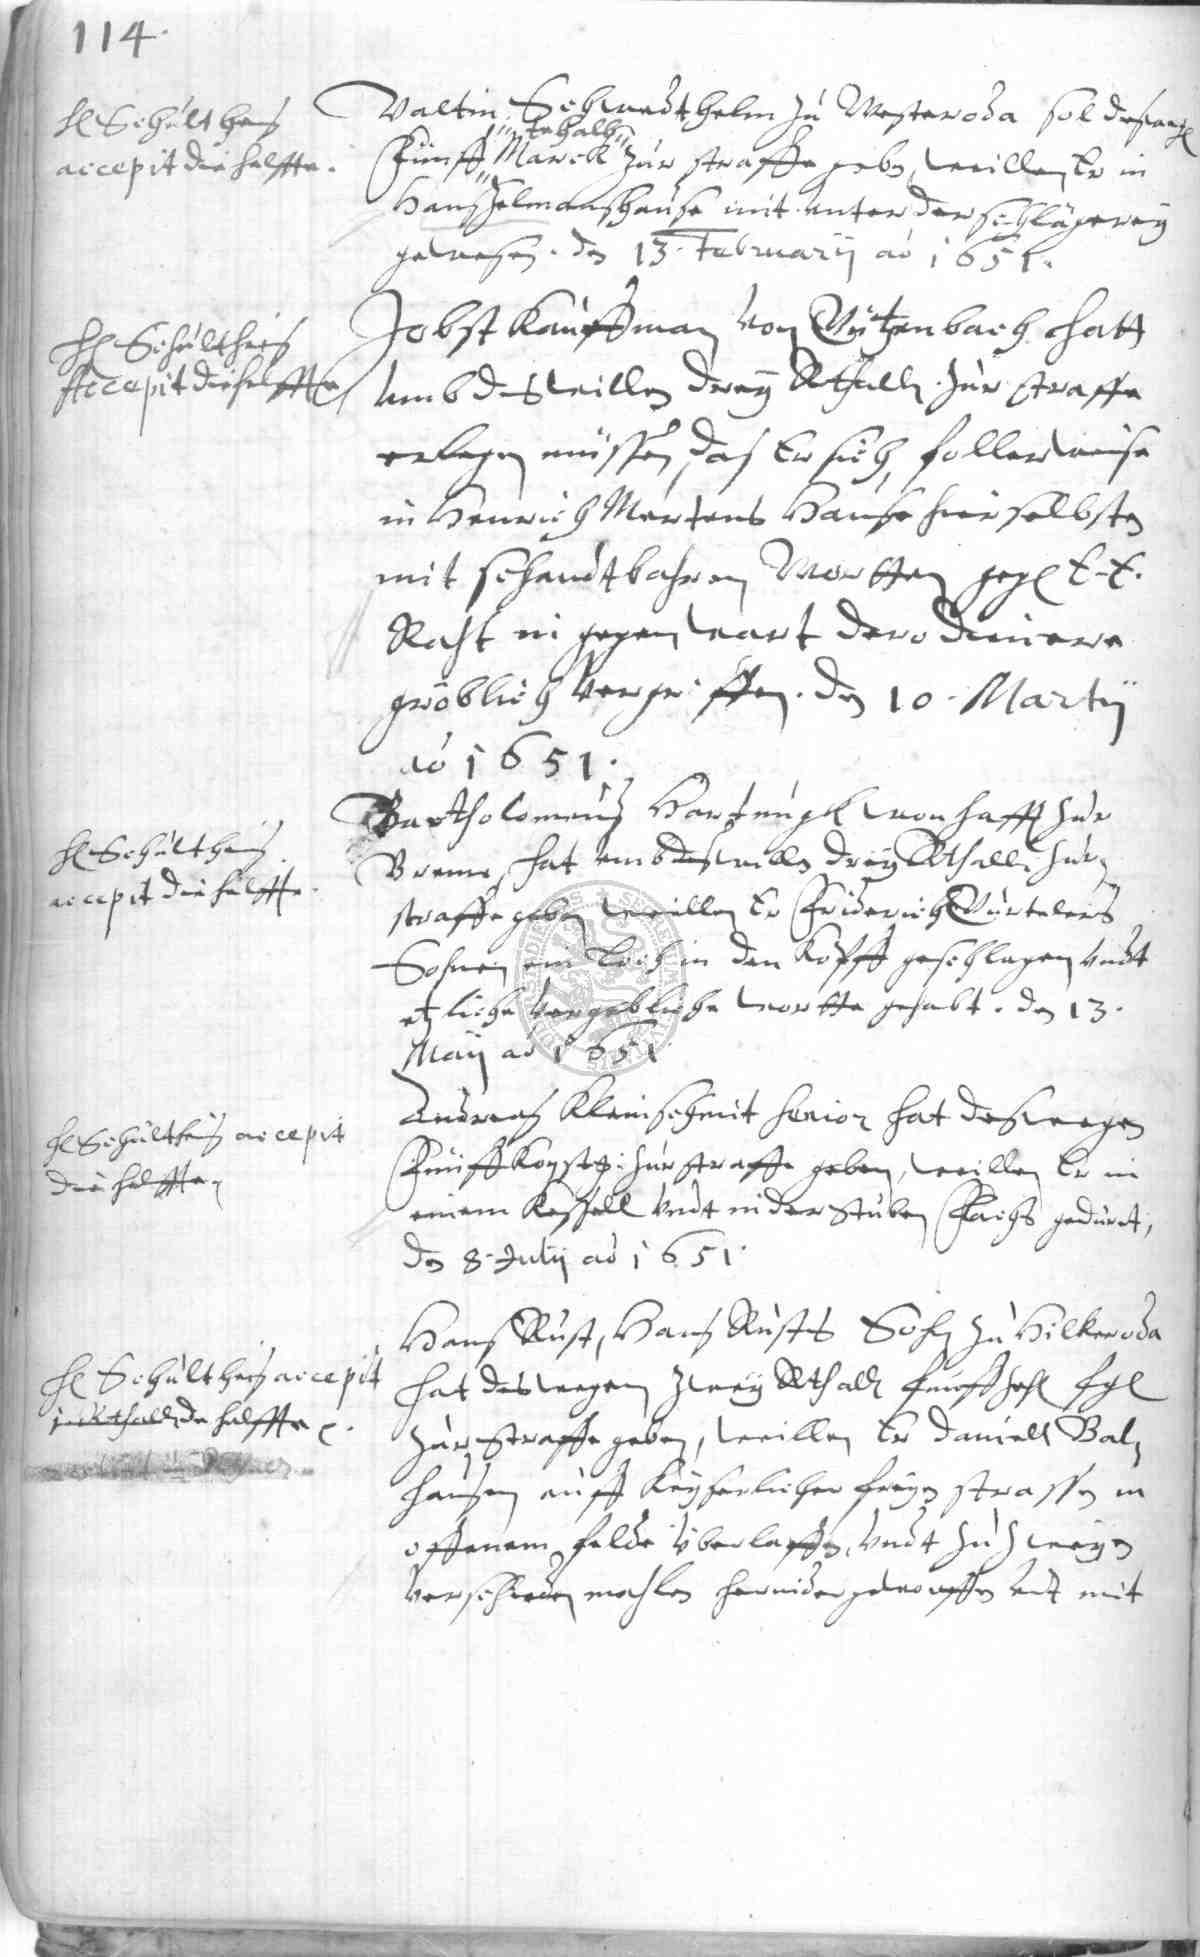 114.
H Schultheis
accepit die helffte.
Valtin Schwedthelm zu Westeroda sol deswegen
tehalb
Fünff Marck zur straffe geben, weillen Er in
Hans Helmans hause mit unter der schlägerey
gewesen. den 13. Februarij ao 1651.
H Schultheis
Accepit die helffte
Jobst Kauffman von Lützenbach hatt
umb deswillen dreÿ Rthall. zur straffe
erlegen müssen, das Er sich, follerweise
in Henrich Mertens Hause hierselbsten
mit schandtbahren Wortten gegen E. E.
Raht in gegenwart dero dienere
gröblich vergriffen. den 10. Martij
ao 1651.
H Schultheis
accepit die helffte.
Bartholomeus Hartungk wonhafft zur
Breme, hat umb deswillen dreÿ Rthall. zur
straffe geben weillen Er Friderich Würtelers
Sohnen ein Loch in den Kopff geschlagen undt
etzliche vergebliche wortte gehabt. den 13.
Maij ao 1651
H Schultheis accepit
die helffte.
Andreas Kleinschmit senior hat deswegen
Fünff Kopstg: zur straffe geben, weillen Er in
einem Kessell undt in der stuben Flachs gedürt,
den 8. Julij ao 1651.
H Schultheis accepit
1 Rthall. de helffte
Hans Rust, Hans Rusts Sohn zu Hilkeroda
hat deswegen zweÿ Rthall. fünffzehn fgl
zur straffe geben, weillen Er Daniell Bal,
hausen auff Keÿserlicher freyen strassen in
offenem felde überlaffen, undt zu zweÿen
verschieden mahlen hernider geworffen undt mit